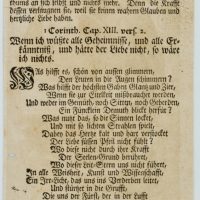 thums an sich nichts nicht mehr. Denn die Krafft
dessen verleugnen sie, weil sie keinen wahren Glauben und
hertzliche Liebe haben.
1 Corinth. Cap. XIII. vers. 2.
Wenn ich wüßte alle Geheimnisse, und alle Er-
käntniß, und hätte der Liebe nicht, so wäre
ich nichts.
WAs hilfft es, schön von aussen glimmern,
Den Leuten in die Augen schimmern?
Was hilfft der höchsten Gaben Glantz und Zier,
Wenn sie zur Eitelkeit mißbrauchet werden,
Und weder im Gemüth, noch Sitten, noch Geberden,
Ein Füncklein Demuth blickt herfür?
Was nutzt das, so die Sinnen locket,
Und mit so lichten Strahlen
Dabey das Hertz kalt und hart verstocket
Der Liebe süssen Pfeil nicht fühlt?
Wo diese nicht durch ihre Krafft
Der Seelen-Grund berühret,
Wo dieser Leit-Stern uns nicht führet,
In alle Weisheit, Kunst und Wissenschafft,
Ein Irr-Licht, das uns ins Verderben leitet,
Und stürtzet in die Grufft,
Die uns der Fürst, der in der Lufft